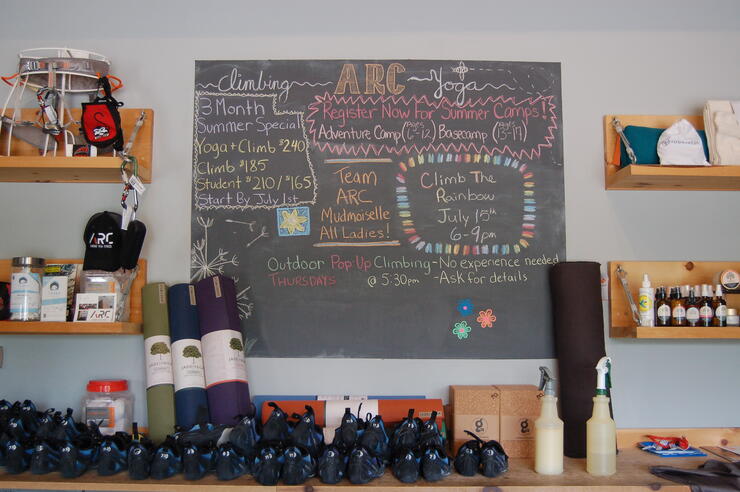 Climbing ARC Yoga
3 Month
Summer Special
Yoga + Climb $240
Climb $185
Student $210/$165
Start By July 1st
Register Now for Summer Camps!
Adventure Camp (ages 6-12) Basecamp (13-17)
Team
ARC
Mudmoiselle
All Ladies!
Climb The
Rainbow
July 15th
6-9pm
Outdoor Pop Up Climbing - No experience needed
THURSDAYS @ 5:30pm - Ask for details
ARC
ARC
g
g